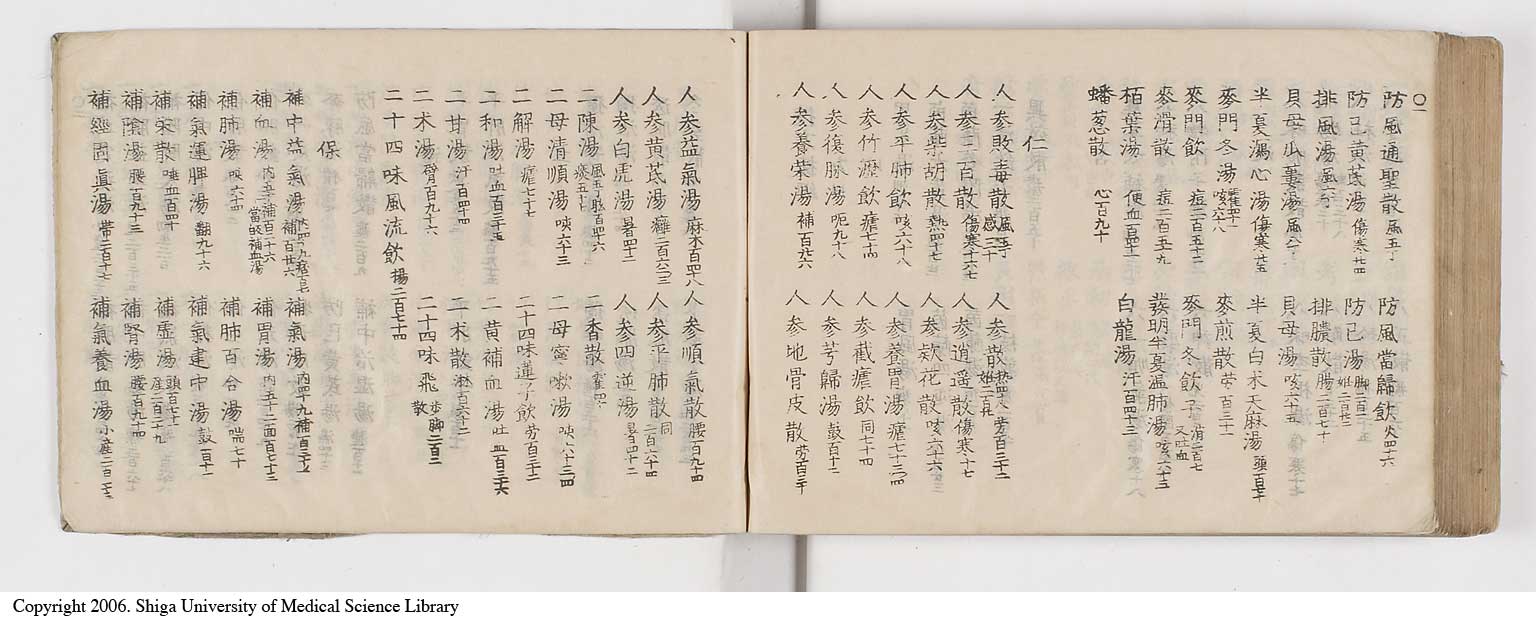 防風通聖散 風五丁
防己黄芪湯 傷寒廿四
排風湯 風六丁
貝母瓜蔞湯 風六丁
半夏瀉心湯 傷寒廿五
麥門冬湯 咳六十八
麥門飲 痘二百五十二
麥滑散 痘二百五十九
栢葉湯 便血百四十二
蟠葱散 心百九十
防風當歸飲 火四十六
防已湯 脚二百三十五
排膿散 腸二百七十
貝母湯 咳六十五
半夏白朮天麻湯 頭百七十
麥煎散 労百三十一
麥門冬飲子 消二百七 又吐血
蕤明半夏温肺湯 咳六十五
白龍湯 汗百四十三
仁
人参敗毒散
人参三百散 傷寒十六七
人参柴胡散 熱四十七
人参平肺飲 咳六十八
人参竹瀝飲
人参復脉湯 呃九十八
人参養榮湯 補百九六
人参散 熱四八 労百三十二
人参逍遥散 傷寒十七
人参欵花散 咳六十六
人参養胃湯 瘧七十三
人参截瘧飲 同七十四
人参芎歸湯 鼓百十二
人参地骨皮散 労百三十
人参益氣湯 麻木百四十八
人参黄芪湯 癰二百六三
人参白虎湯 暑四十二
二陳湯 痰五十七
二母清順湯 咳六十三
二解湯 瘧七十七
二和湯 吐血百三十五
二甘湯 汗百四十四
二术湯 臂百九十六
二十四味風流飲 楊二百七十四
人参順氣散 腰百九十四
人参平肺散 同二百六十四
人参四逆湯 暑四十二
二香散
二母寧嗽湯 咳六十三
二十四味蓮子飲 労百三十二
二黄補血湯 吐血百三十六
二木散 淋百六十二
二十四味飛歩散 脚二百三
保
補中益氣湯
補血湯 當的補血湯
補肺湯 咳六十四
補氣運脾湯 翻九十六
補栄散 唾血百四十
補陰湯 腰百九十三
補經固眞湯 帶二百十七
補氣湯 内四十九 補百二十七
補胃湯 内五十二 面百七十三
補肺百合湯 喘七十
補氣建中湯 鼓百十一
補虚湯 頭百七十 産二百二十九
補腎湯 腰百九十四
補氣養血湯 小産二百二十三
Copyright 2006. Shiga University of Medical Science Library